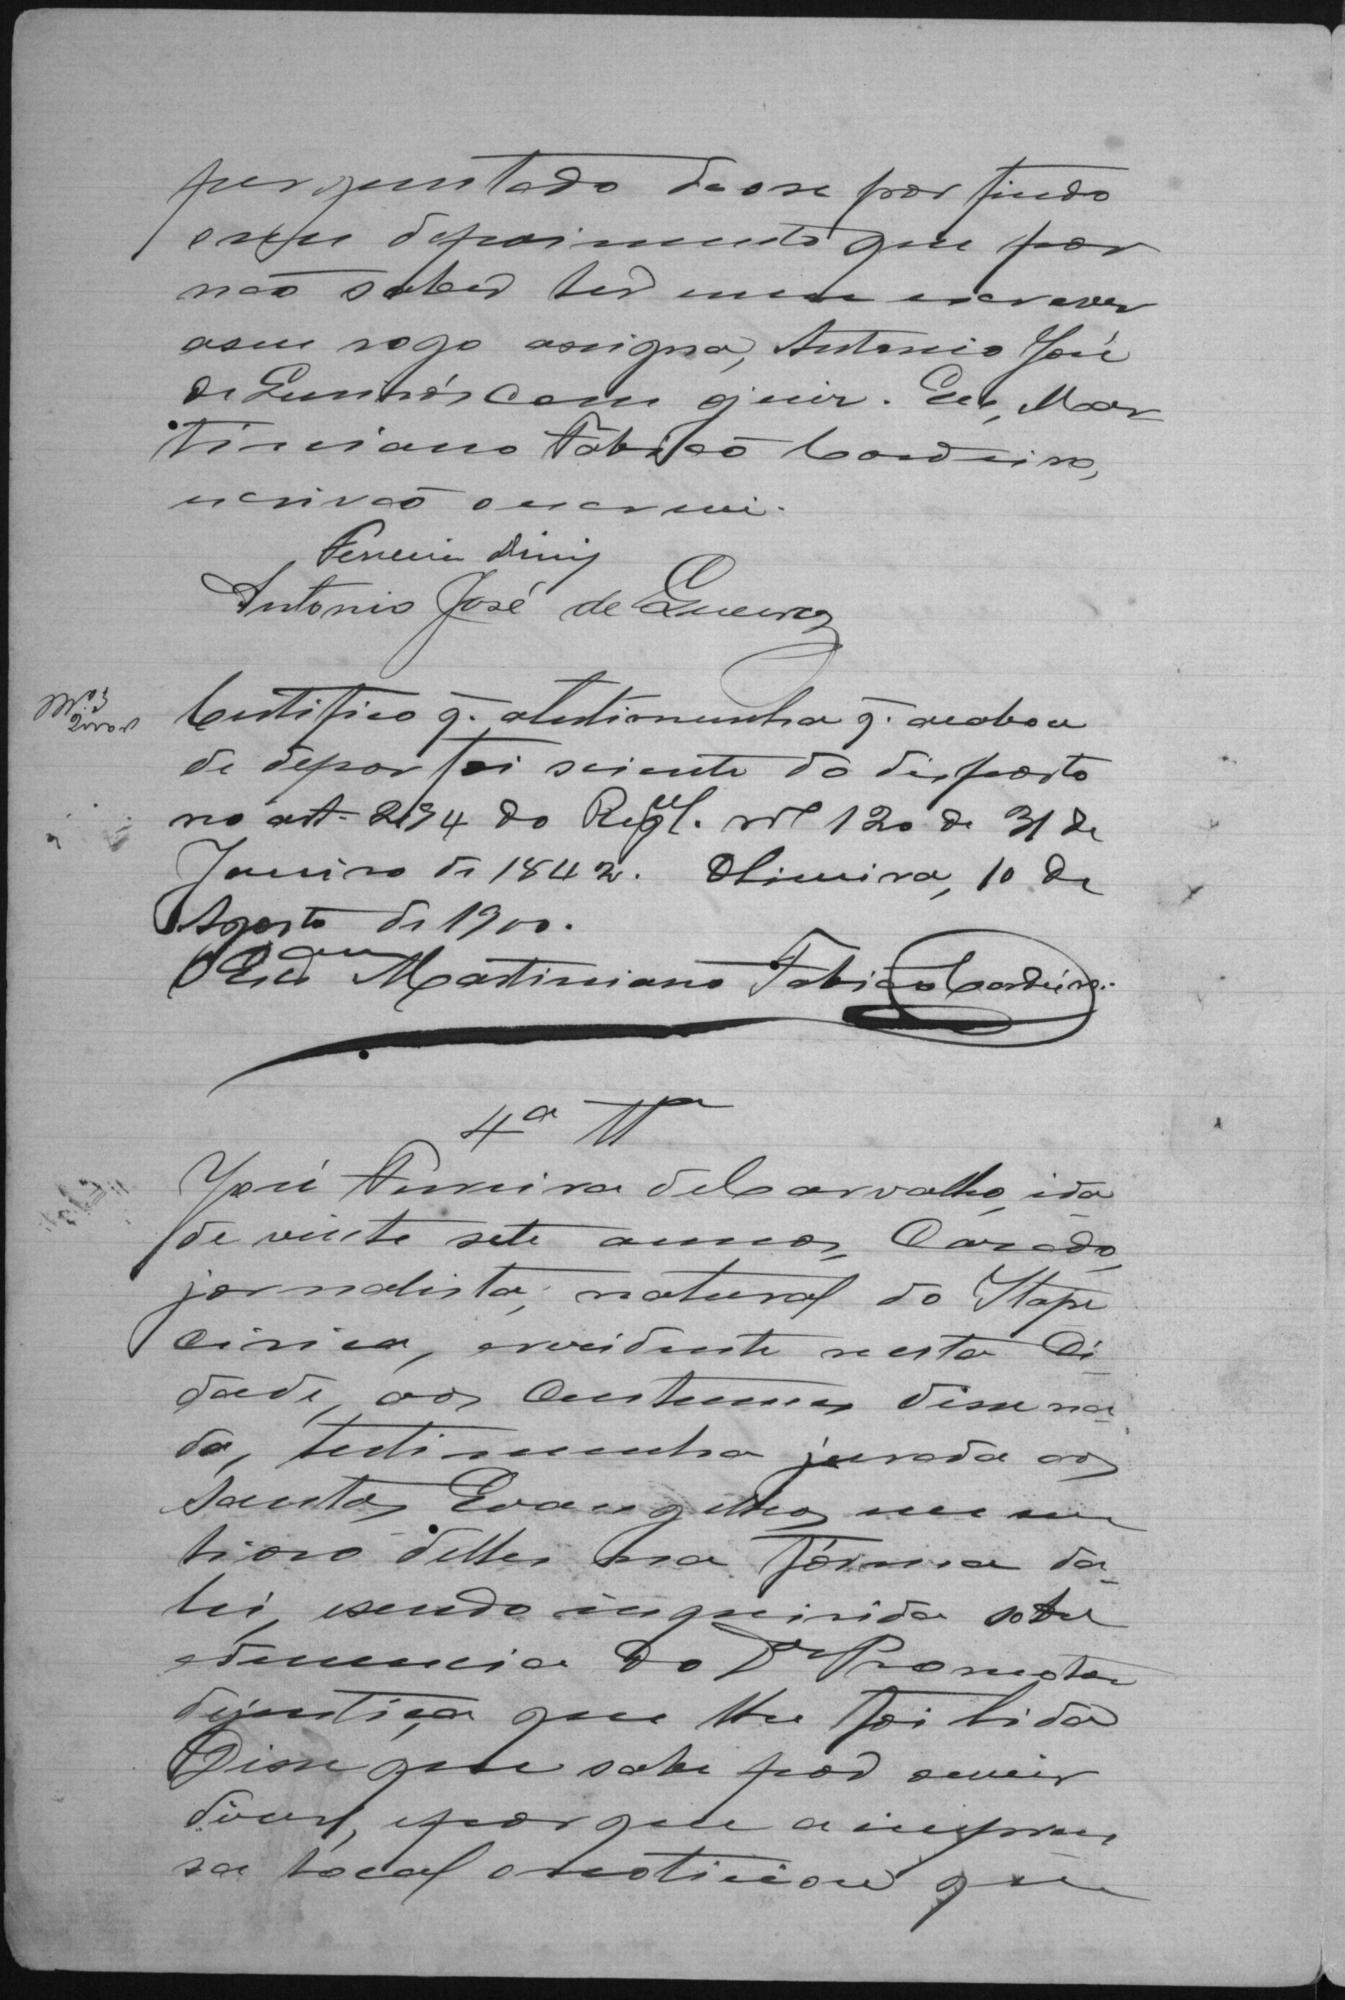 perguntado deose por findo
o seu depoimento que por
não saber ler nem escrever
a seu rogo assigna, Antonio José
de Queirós com o juiz. Eu, Mar
tiniano Fabião Cordeiro,
escrivão o escrevi.
Ferreira Diniz
Antonio José de Queiroz
Certifico q. a testimunha q. acabou
de depor foi sciente do disposto
no art. 294 do Regul. nº 120 de 31 de
Janeiro de 1842. Oliveira, 10 de
Agosto de 1900.
O Escram Martiniano Fabião Cordeiro.
4ª Tª
José Ferreira de Carvalho, ida
de vinte sete annos, Casado,
jornalista, natural do Itape
cirica, e residente nesta Ci
dade, aos Custumes disse na
da, testimunha jurada aos
Santos Evangelhos em um
livro delles na forma da
lei, e sendo inquirida sobre
a denuncia do Dr Promotor
de justiça que lhe foi lida
Disse que sabe por ouvir
dizer, e porque a impren
sa local o noticiou que